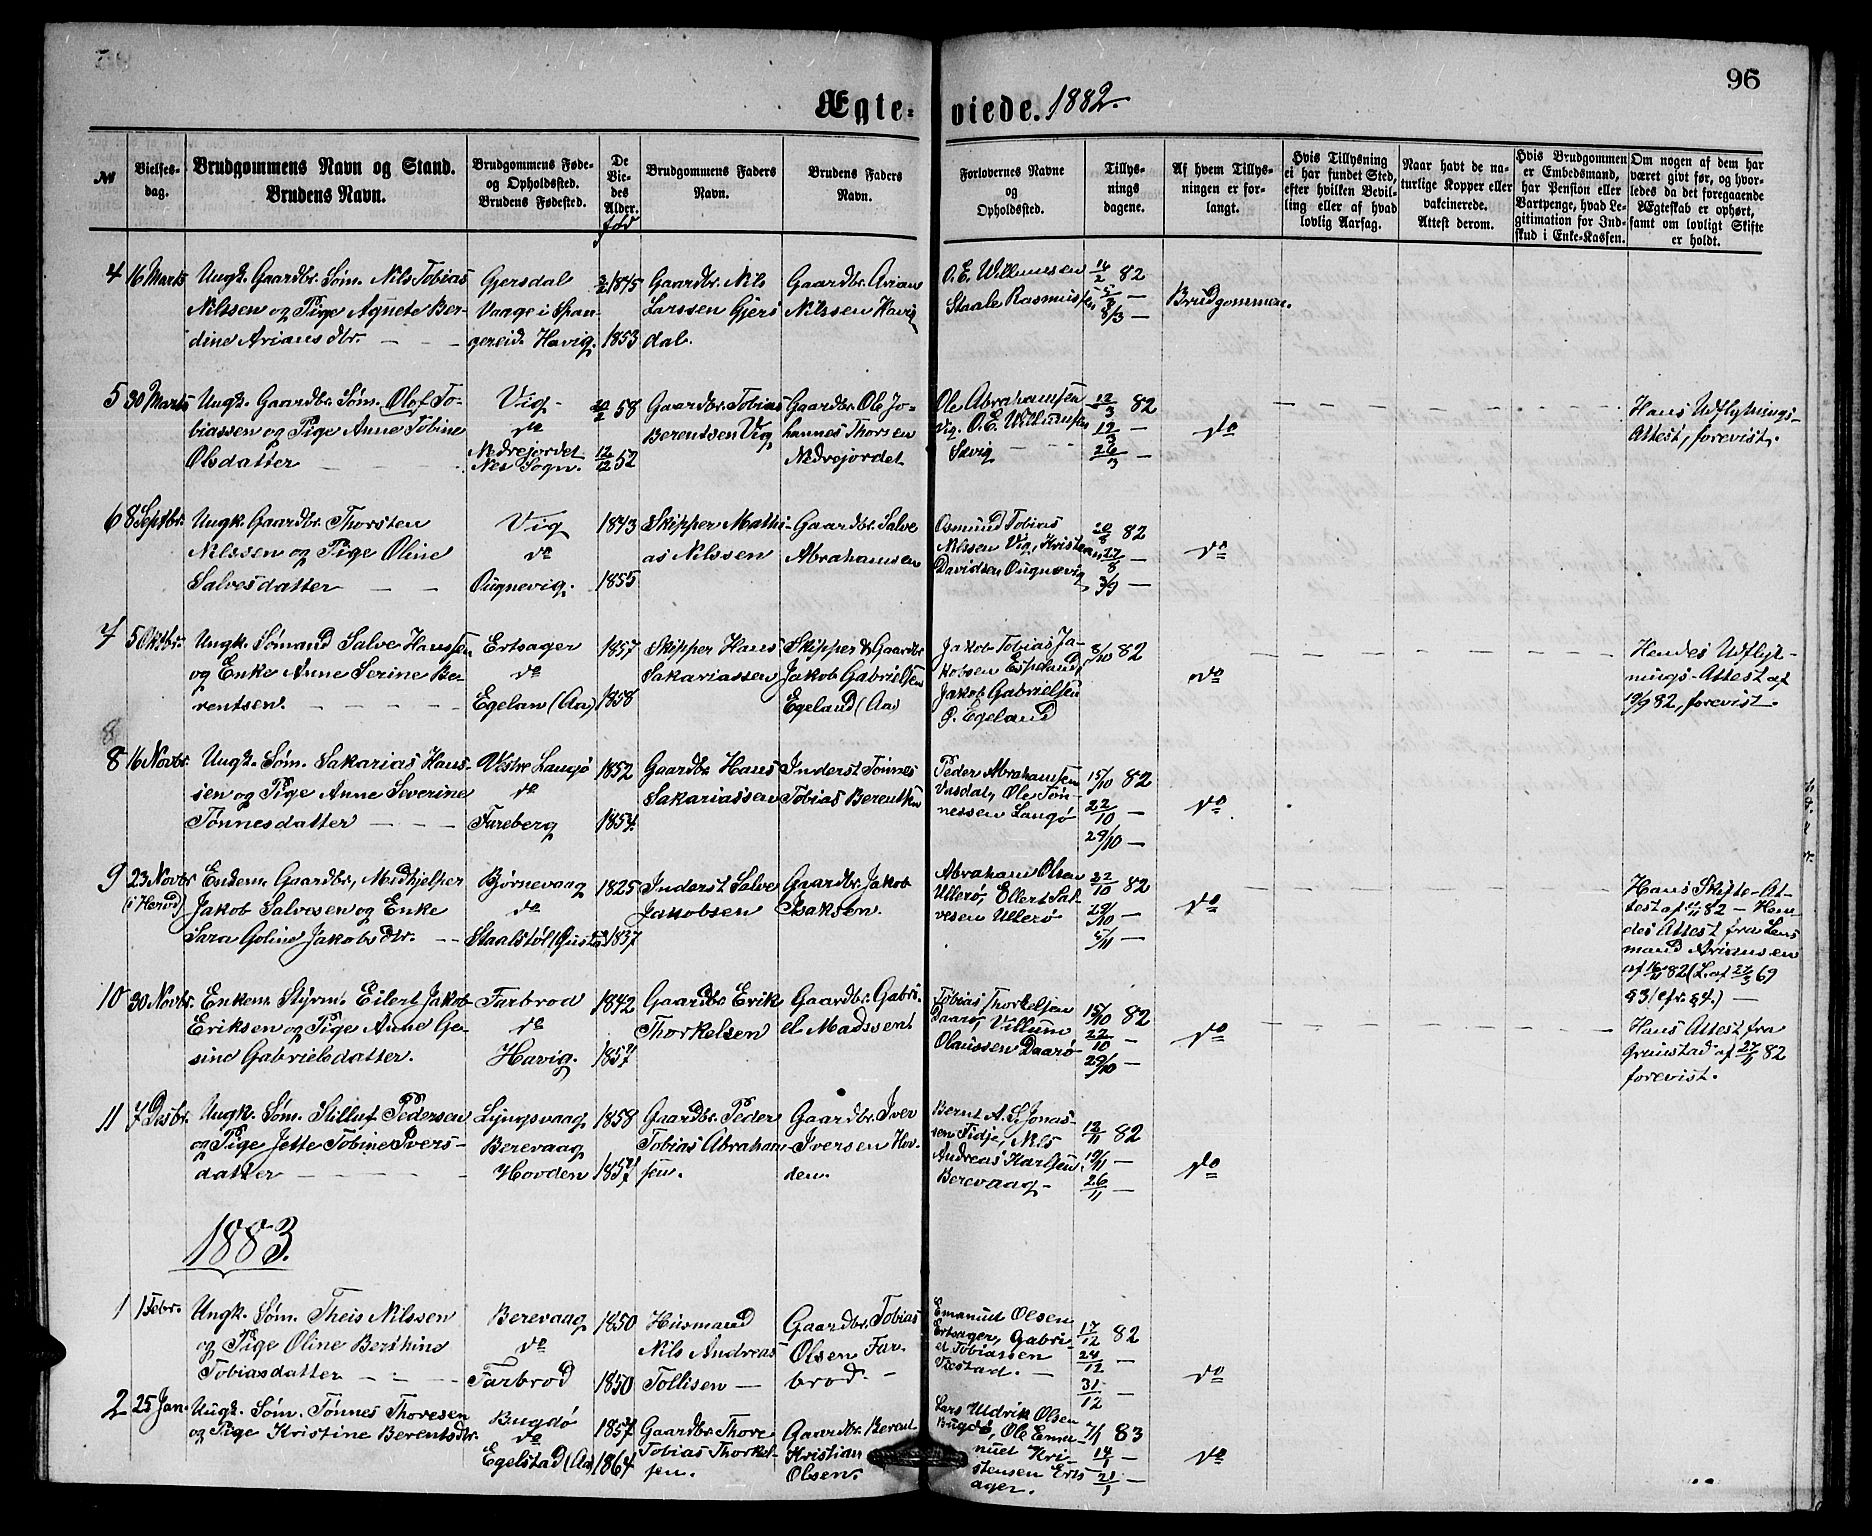 96
Ægteviede. 1882.
№
Vielses-
dag.
Brudgommens Navn og Stand.
Brudens Navn.
Brudgommens Føde-
og Opholdssted.
Brudens Fødested.
De
Vie-
des
Alder.
født
Brudgommens Faders
Navn.
Brudens Faders
Navn.
Forlovernes Navne
og
Opholdssted.
Tillys-
nings
dagene.
Af hvem Tillys-
ningen er for-
langt.
Hvis Tillysning
ei har fundet Sted,
efter hvilken Bevil-
ling eller af hvad
lovlig Aarsag.
Naar havt de na-
turlige Kopper eller
vakcinerede.
Attest derom.
Hvis Brudgommen
er Embedsmand,
har Pension eller
Vartpenge, hvad Le-
gitimation for Ind-
skud i Enke-Kassen.
Om nogen af dem har
været givt før, og hvor-
ledes da det foregaaende
Ægteskab er ophørt,
samt om lovligt Skifte
er holdt.
4
16 Marts
Ungk. Gaardbr. Søm. Nils Tobias
Nilssen og Pige Agnete Ber-
dine Arians dtr. — —
Gjersdal
Vaage i Span-
gereid. Havig.
1845
1853
Gaardbr. Nils
Larssen Gjers
dal.
Gaardbr. Arians
Nilssen Havig
O. E. Willumsen
Staale Rasmussen
82
8/3 —
Brudgommen.
5
30 Marts
Ungk. Gaardbr. Søm. Olof To-
biassen og Pige Anne Tobine
Olsdatter —
Vig -
do
Nedrejordet
Nes Sogn.
58
12/12 52
Gaardbr. Tobias
Berentsen Vig
Gaardbr. Ole Jo-
hannes Thorsen
Nedrejordet
Ole Abrahamsen
Vig. O. E. Willumsen
12/3 82
12/3 —
26/3 —
do
Hans Udflytnings-
Attest, forevist.
6
8 Septbr.
Ungk. Gaardbr. Thorsten
Nilssen og Pige Oline
Salvesdatter — —
Vig
do
Ougnevig.
1843
1855
Skipper Mathi-
as Nilssen
Gaardbr. Salve
Abrahamsen
Osmund Tobias
Nilssen Vig, Kristean
Davidsen Ougnevig
20/8 82
27/8 —
3/9 —
do
7
5 Oktbr.
Ungk. Sømand Salve Hanssen
og Enke Anne Serine Be-
rentsen. — — — —
Ertsager
do
Egelan (Aa)
1857
1858
Skipper Hans
Sakariassen
Skipper & Gaardbr
Jakob Gabrielsen
Egeland (Aa)
Jakob Tobias Ja-
kobsen Espeland,
Jakob Gabrielsen
Egeland
8/10 82
do
Hendes Udflyt-
nings-Attest af
19/9 82, forevist.
8
16 Novbr.
Ungk. Søm. Sakarias Hans-
sen og Pige Anne Severine
Tønnesdatter — —
Vestre Langø
do
Fareberg
1852
1854.
Gaardbr Hans
Sakariassen
Inderst Tønnes
Tobias Berentsen
Peder Abrahamsen
Ole Tøn-
nessen Langø
15/10 82
22/10 —
29/10 —
do
9
23 Novbr
(i Herod)
Enkem. Gaardbr, Medhjelper
Jakob Salvesen og Enke
Sara Goline Jakobsdtr. —
Bjørnevaag
do
Staalstøl
1825
1837
Inderst Salve
Jakobsen
Gaardbr. Jakob
Isaksen.
Abraham Olsen
Ullerø, Ellert Sal-
vesen Ullerø
22/10 82
29/10 —
5/11 —
do
Hans Skifte-At-
test af 82 — Hen-
des Attest fra Lens
mand Ariansen
af 16/11 82 (L. af 27/3 69
§ 3 (cfr. § 4.) —
10
30 Novbr.
Enkem. Styrm. Eilert Jakob
Eriksen og Pige Anne Ge-
sine Gabrielsdatter.
Farbrod
do
Havig.
1842
1857
Gaardbr Erik
Thorkelsen
Gaardbr. Gabri-
el Madssen
Tobias Thorkelsen
Daarø, Villum
Olaussen Daarø
15/10 82
22/10 —
29/10 —
do
Hans Attest fra
Grimstad af 27/11 82
forevist.
11
7 Desbr.
Ungk. Søm. Stilluf Pedersen
og Pige Jette Tobine Ivers-
datter — — — —
Lyngsvaag
Berevaag
Hovden
1858
1857
Gaardbr. Peder
Tobias Abraham-
sen.
Gaardbr. Iver
Iversen Hov-
den.
Bernt A. S. Jonas-
sen Tidje, Nils
Andreas Karlsen
Berevaag -
12/11 82
19/11 —
26/11 —
do
1883.
1
1 Febr.
Ungk. Søm. Theis Nilssen
og Pige Oline Berthine
Tobiasdatter — — —
Berevaag
do
Farbrod
1850
1850
Husmand
Nils Andreas
Tollisen —
Gaardbr. Tobias
Olsen Far-
brod. -
Emanuel Olsen
Ertsager, Gabri-
el Tobiassen
17/12 82
24/12 —
31/12 —
do
2
25 Jan.
Ungk. Søm. Tønnes Thoresen
og Pige Kristine Berentsdtr.
Bugdø
do
Egelstad (Aa)
1857
1864
Gaardbr. Thore
Tobias Thorkel-
sen.
Gaardbr. Berent
Kristian
Olsen.
Lars Uldrik Olsen
Bugdø, Ole Ema-
nuel Kri-
stensen Erts
ager.
7/1 83
14/1 —
21/1 —
do